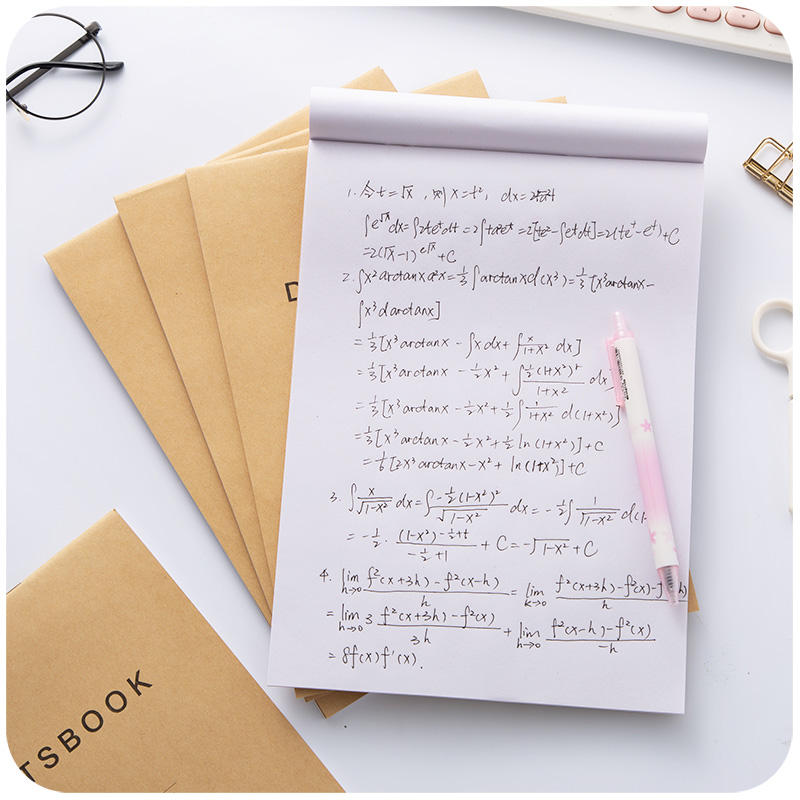 1. 令t=√x, 则x=t², dx=2tdt
∫e^√x dx=∫2te^t dt=2∫tde^t=2[te^t-∫e^t dt]=2(te^t-e^t)+C
=2(√x-1)e^√x+C
2. ∫x²arctanxdx=1/3∫arctanxd(x³)=1/3[x³arctanx-
∫x³darctanx]
=1/3[x³arctanx-∫xdx+∫x/(1+x²) dx]
=1/3[x³arctanx-1/2x²+∫(1/2(1+x²)')/(1+x²) dx
=1/3[x³arctanx-1/2x²+1/2∫1/(1+x²) d(1+x²)]
=1/3[x³arctanx-1/2x²+1/2ln(1+x²)]+C
=1/6[2x³arctanx-x²+ln(1+x²)]+C
3. ∫x/√(1-x²) dx=∫(-1/2(1-x²)')/√(1-x²) dx=-1/2∫1/√(1-x²) d(1-
=-1/2·(1-x²)^(-1/2+1)/(-1/2+1)+C=-√(1-x²)+C
4. lim h→0 (f²(x+3h)-f²(x-h))/h=lim h→0 (f²(x+3h)-f²(x)-f² h)
=lim h→0 3 (f²(x+3h)-f²(x))/3h+lim h→0 (f²(x-h)-f²(x))/-h
=8f(x)f'(x).
D
TSBOOK